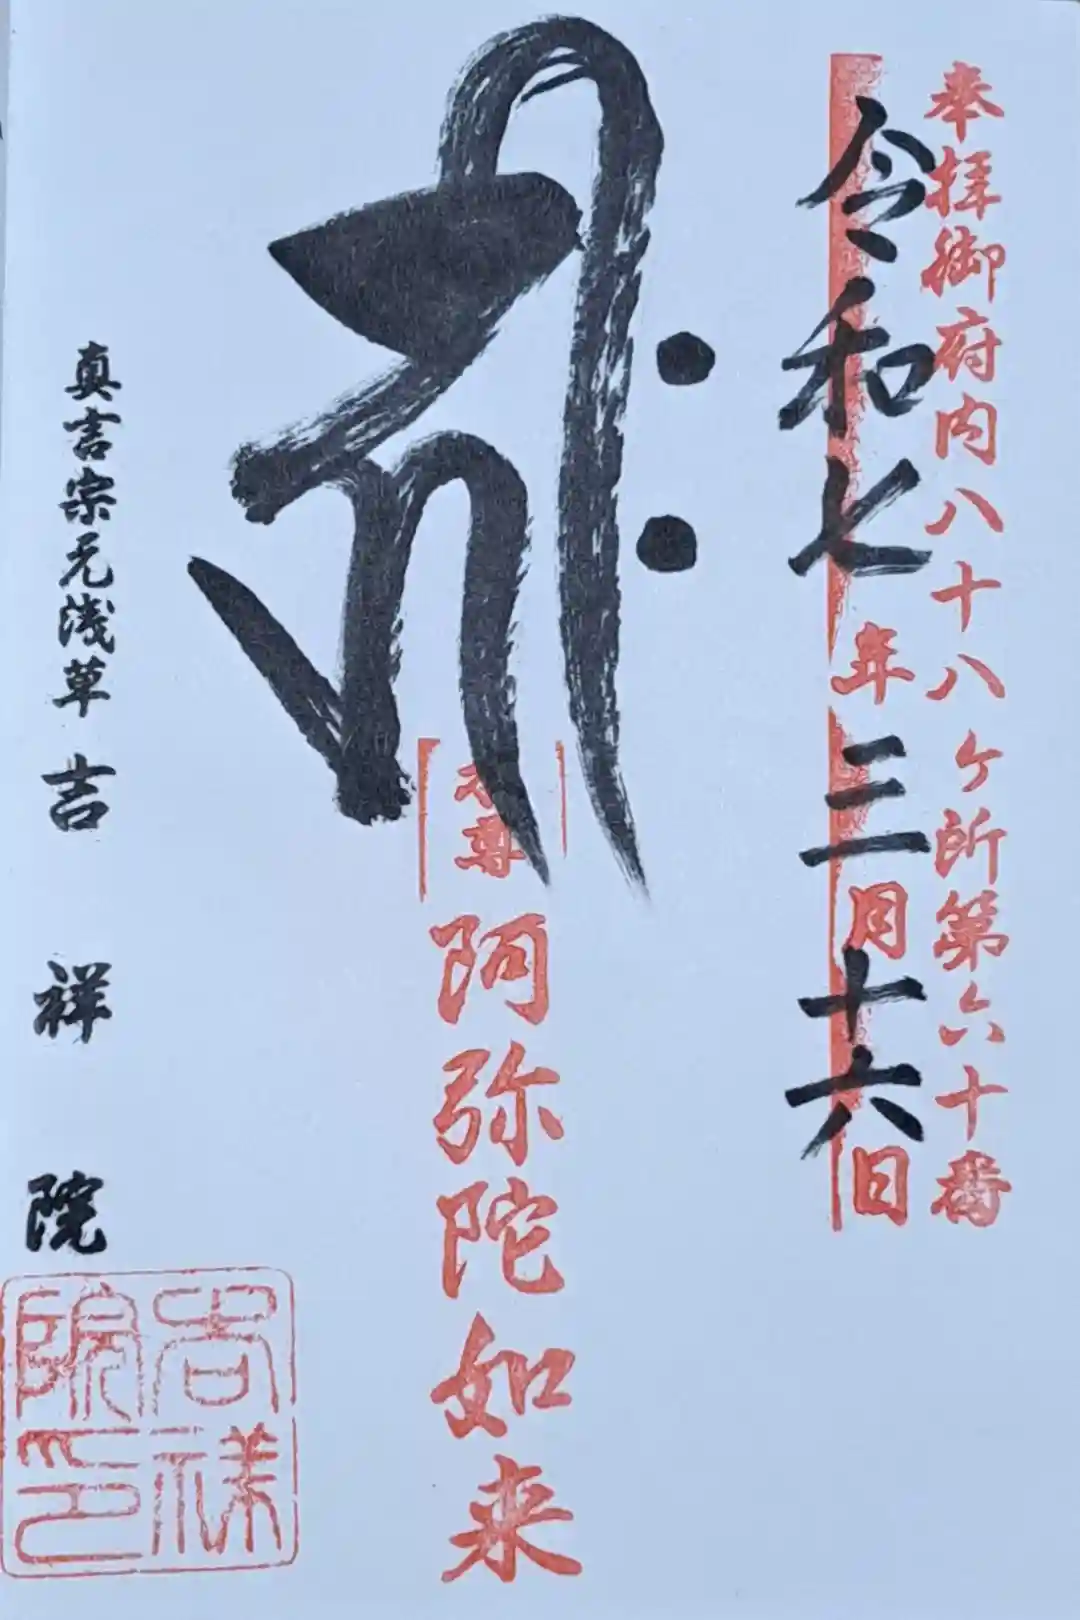 奉拝御府内八十八ケ所第六十番
令和七年三月十六日
ꣿ𑖮𑖿𑖨𑖱𑖾
本尊
阿弥陀如来
真言宗元浅草 吉祥院
吉祥院印